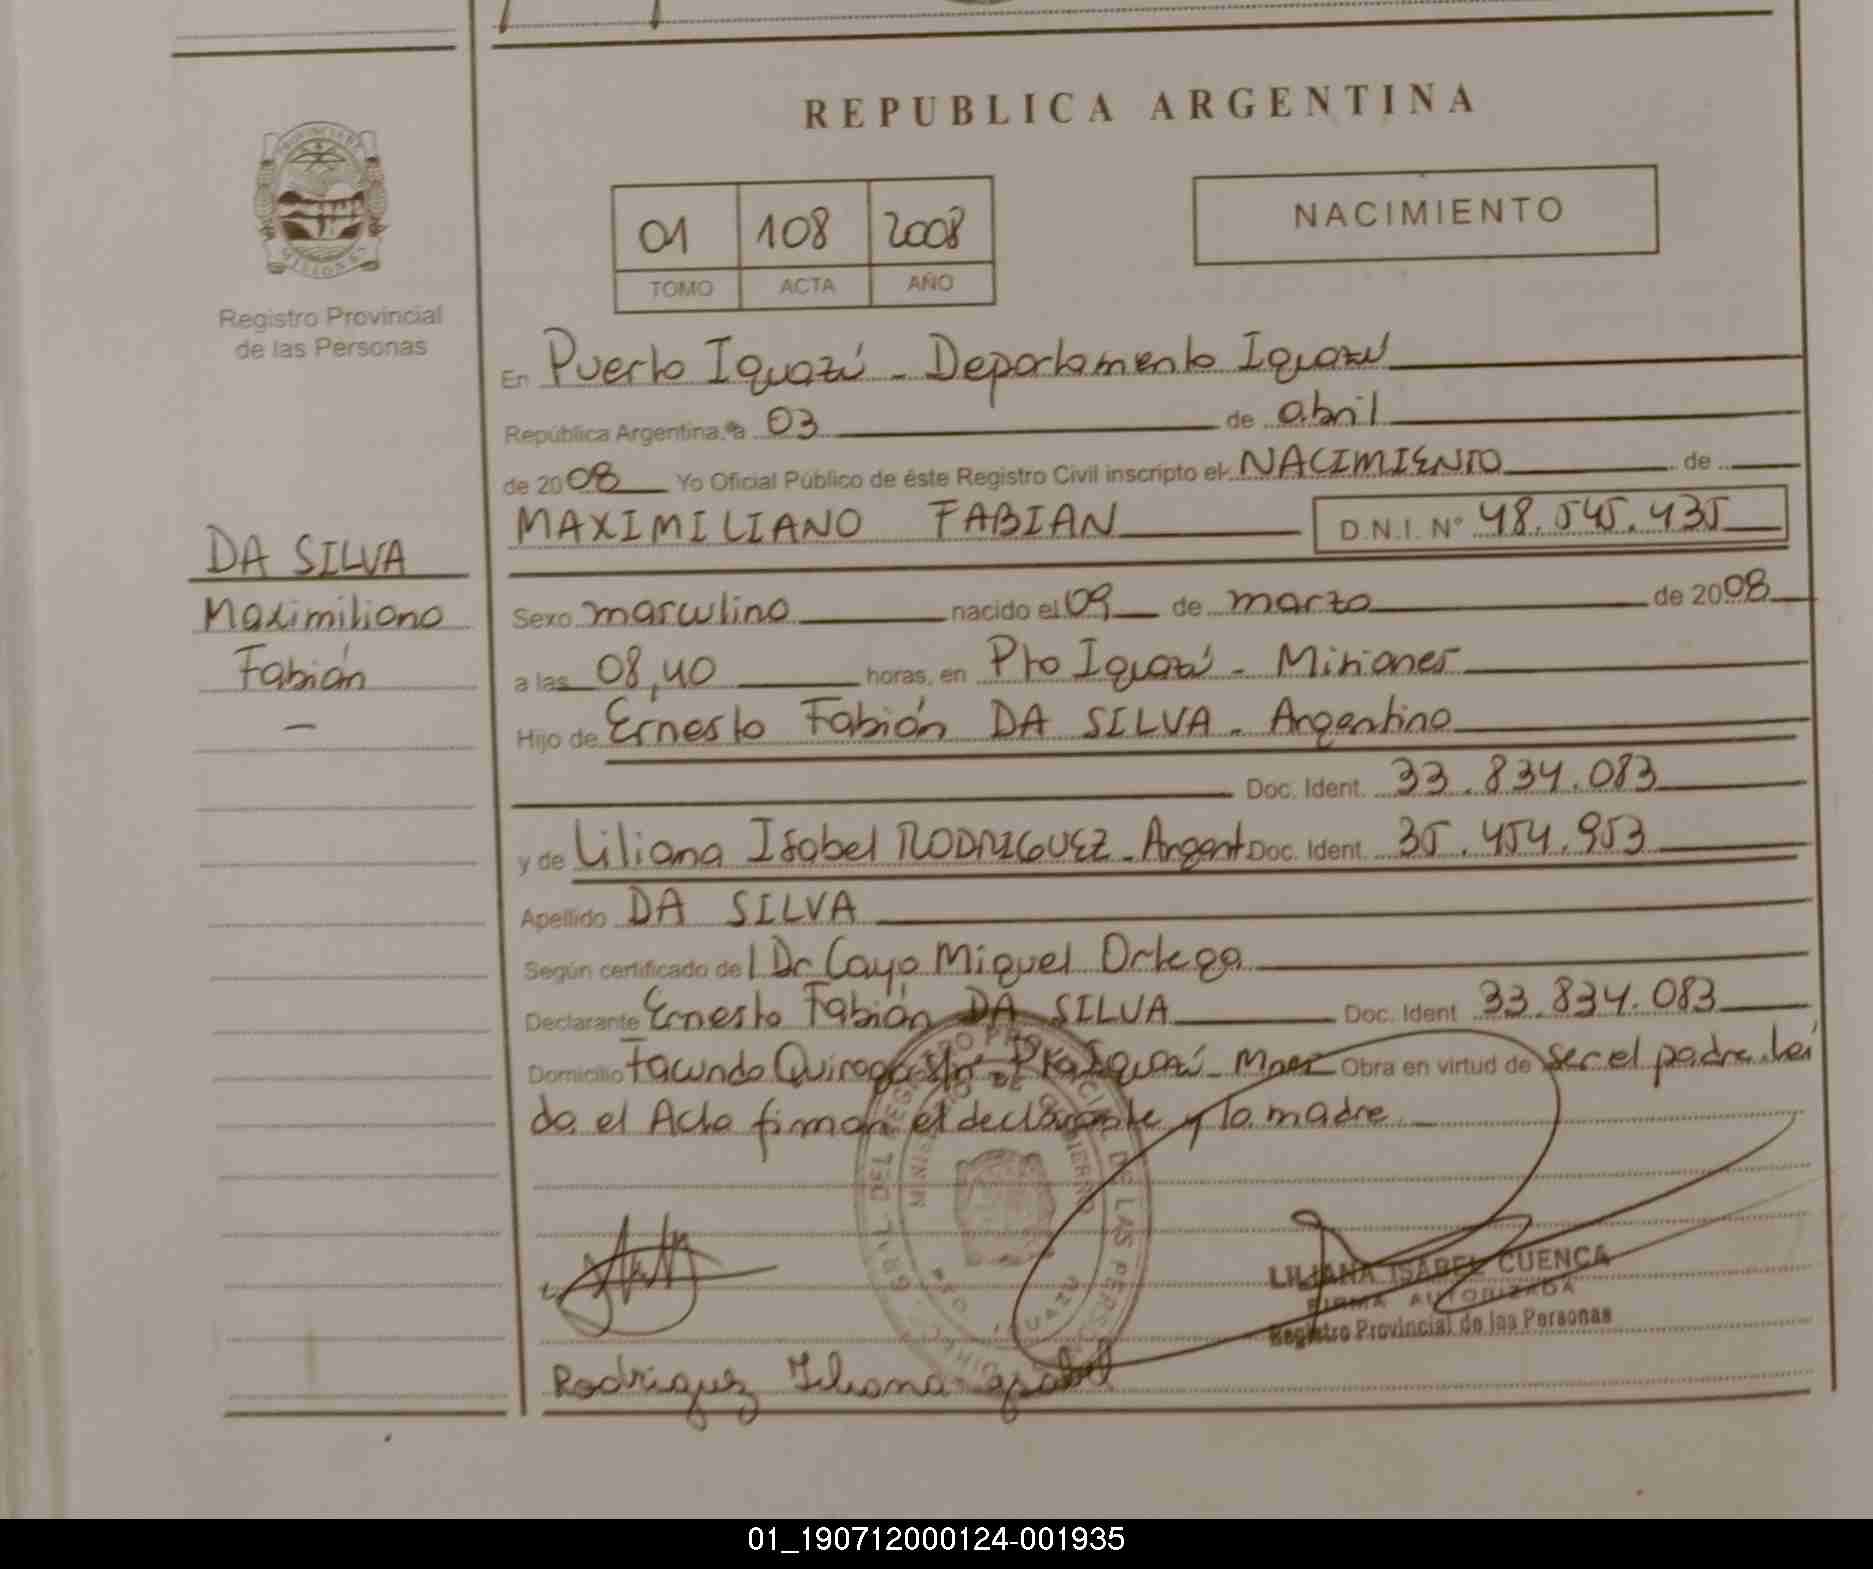 REPUBLICA ARGENTINA
NACIMIENTO
01 108 2008
TOMO ACTA AÑO
Registro Provincial
de las Personas
En Puerto Iguazú - Departamento Iguazú
República Argentina, a 03 de abril
de 2008 Yo Oficial Público de éste Registro Civil inscripto el NACIMIENTO de
MAXIMILIANO FABIAN D.N.I. Nº 48.545.435
DA SILVA
Maximiliano
Fabián
Sexo masculino nacido el 09 de marzo de 2008
a las 08,40 horas, en Pto Iguazú - Misiones
Hijo de Ernesto Fabián DA SILVA - Argentino
Doc. Ident. 33.834.083
y de Liliana Isabel RODRIGUEZ - Argent Doc. Ident. 35.454.953
Apellido DA SILVA
Según certificado del Dr Cayo Miguel Ortega
Declarante Ernesto Fabián DA SILVA Doc. Ident 33.834.083
Domicilio Facundo Quiroga s/nº - Pto Iguazú - Mnes Obra en virtud de ser el padre. Leí
da el Acta firman el declarante y la madre
LILIANA ISABEL CUENCA
FIRMA AUTORIZADA
Registro Provincial de las Personas
Rodriguez Iliana Isabel
01_190712000124-001935